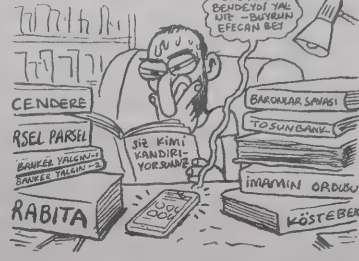 BENDEYDİ YAL
NIZ - BUYRUN
EFECAN BEY
CENDERE
RSEL PARSEL
BANKER YALÇIN-1
BANKER YALÇIN-2
RABITA
SİZ KİMİ
KANDIRI-
YORSUNUZ
BARONLAR SAVAŞI
TOSUNBANK
İMAMIN ORDUSU
KÖSTEBEK